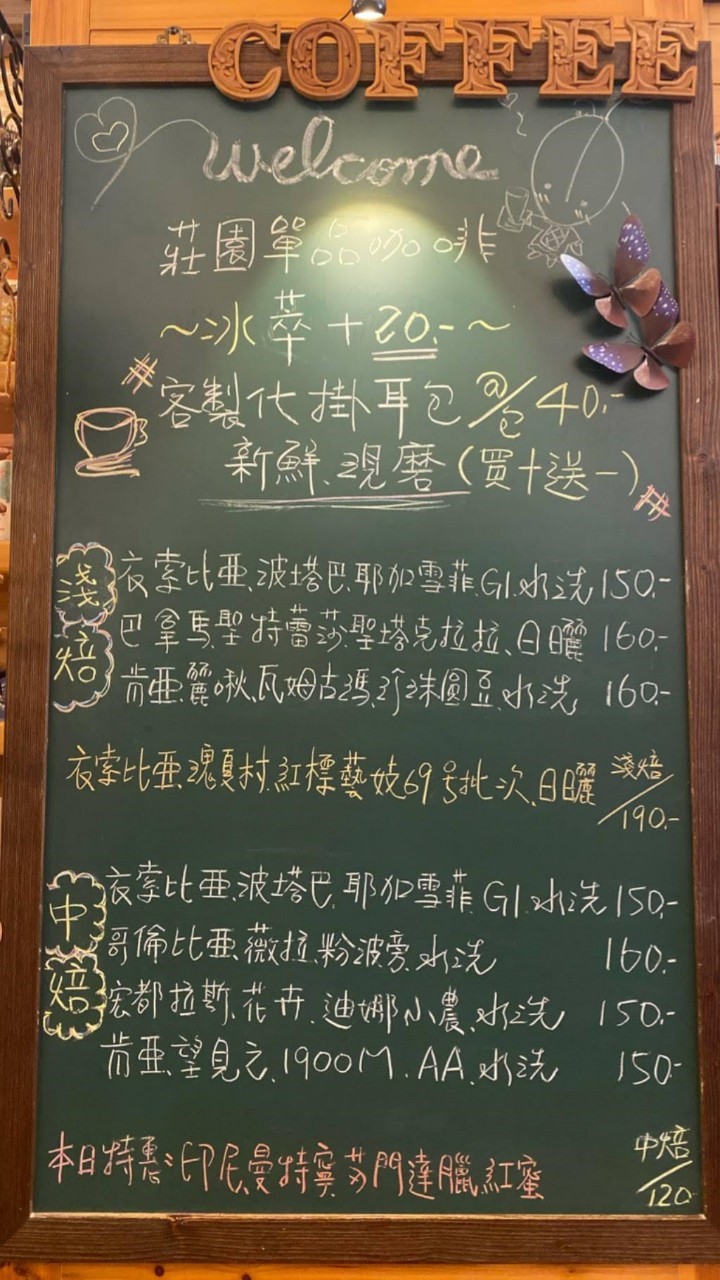 COFFEE
welcome
莊園單品咖啡
~冰萃+20.-~
#客製化掛耳包@/包40.-
新鮮、現磨(買十送一)#
淺焙
衣索比亞.波塔巴.耶加雪菲.G1.水洗150.-
巴拿馬.聖特蕾莎.聖塔克拉拉、日曬 160.-
肯亞.麗啾.瓦姆古瑪.珍珠圓豆.水洗 160.-
衣索比亞.瑰夏村.紅標藝妓69号批次.日曬 淺焙/190.-
中焙
衣索比亞.波塔巴.耶加雪菲.G1.水洗150.-
哥倫比亞.薇拉.粉波旁.水洗 160.-
宏都拉斯.花卉.迪娜小農.水洗 150.-
肯亞.望見之.1900M.AA.水洗 150.-
本日特惠:印尼.曼特寧.芬門達臘.紅蜜 中焙/120